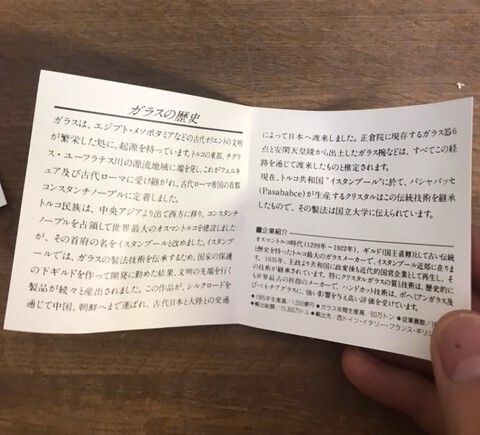 ガラスの歴史
ガラスは、エジプト・メソポタミアなどの古代オリエントの文明
が繁栄した処に、起源を持っています。トルコの東部、チグリ
ス・ユーフラテス川の源流地域に端を発し、これがフェニキ
ュア及び古代ローマに受け継がれ、古代ローマ帝国の首都
コンスタンチノープルに定着しました。
トルコ民族は、中央アジアより出て西方に移り、コンスタンチ
ノープルを占領して世界最大のオスマントルコを建設しました
が、その首府の名をイスタンブールと改めました。イスタンブ
ールでは、ガラスの製法技術を伝承するため、国家の保護
の下ギルドを作って開発に勤めた結果、文明の先端を行く
製品が続々と産出されました。この作品が、シルクロードを
通じて中国、朝鮮へまで運ばれ、古代日本と大陸との交通
によって日本へ渡来しました。正倉院に現存するガラス器6
点と安閑天皇陵から出土したガラス椀などは、すべてこの経
路を通じて渡来したものと推定されます。
現在、トルコ共和国“イスタンブール”に於て、パシャバッセ
(Pasabahce)が生産するクリスタルはこの伝統技術を継承
したもので、その製法は国立大学に伝えられています。
■企業紹介
オスマントルコ時代(1299年~1922年)、ギルド(国王直轄)として古い伝統
と歴史を持ったトルコ最大のガラスメーカーで、イスタンブール近郊に在りま
す。1935年、王政より共和国に政変後も近代的国営企業として再生し、そ
の技術が継承されています。特にクリスタルガラスの質と技術は、歴史的に
も世界最古の指指のメーカーで、ハンドカット技術は、ボヘミアンガラス及
びベネチアグラスに、強い影響を与え高い評価を受けています。
●1985年生産高/1,550億円 ●ガラス年間生産高/60万トン ●従業員数/1
●輸出総額/15,300万ドル ●輸出先/西ドイツ・イタリー・フランス・ギリシ